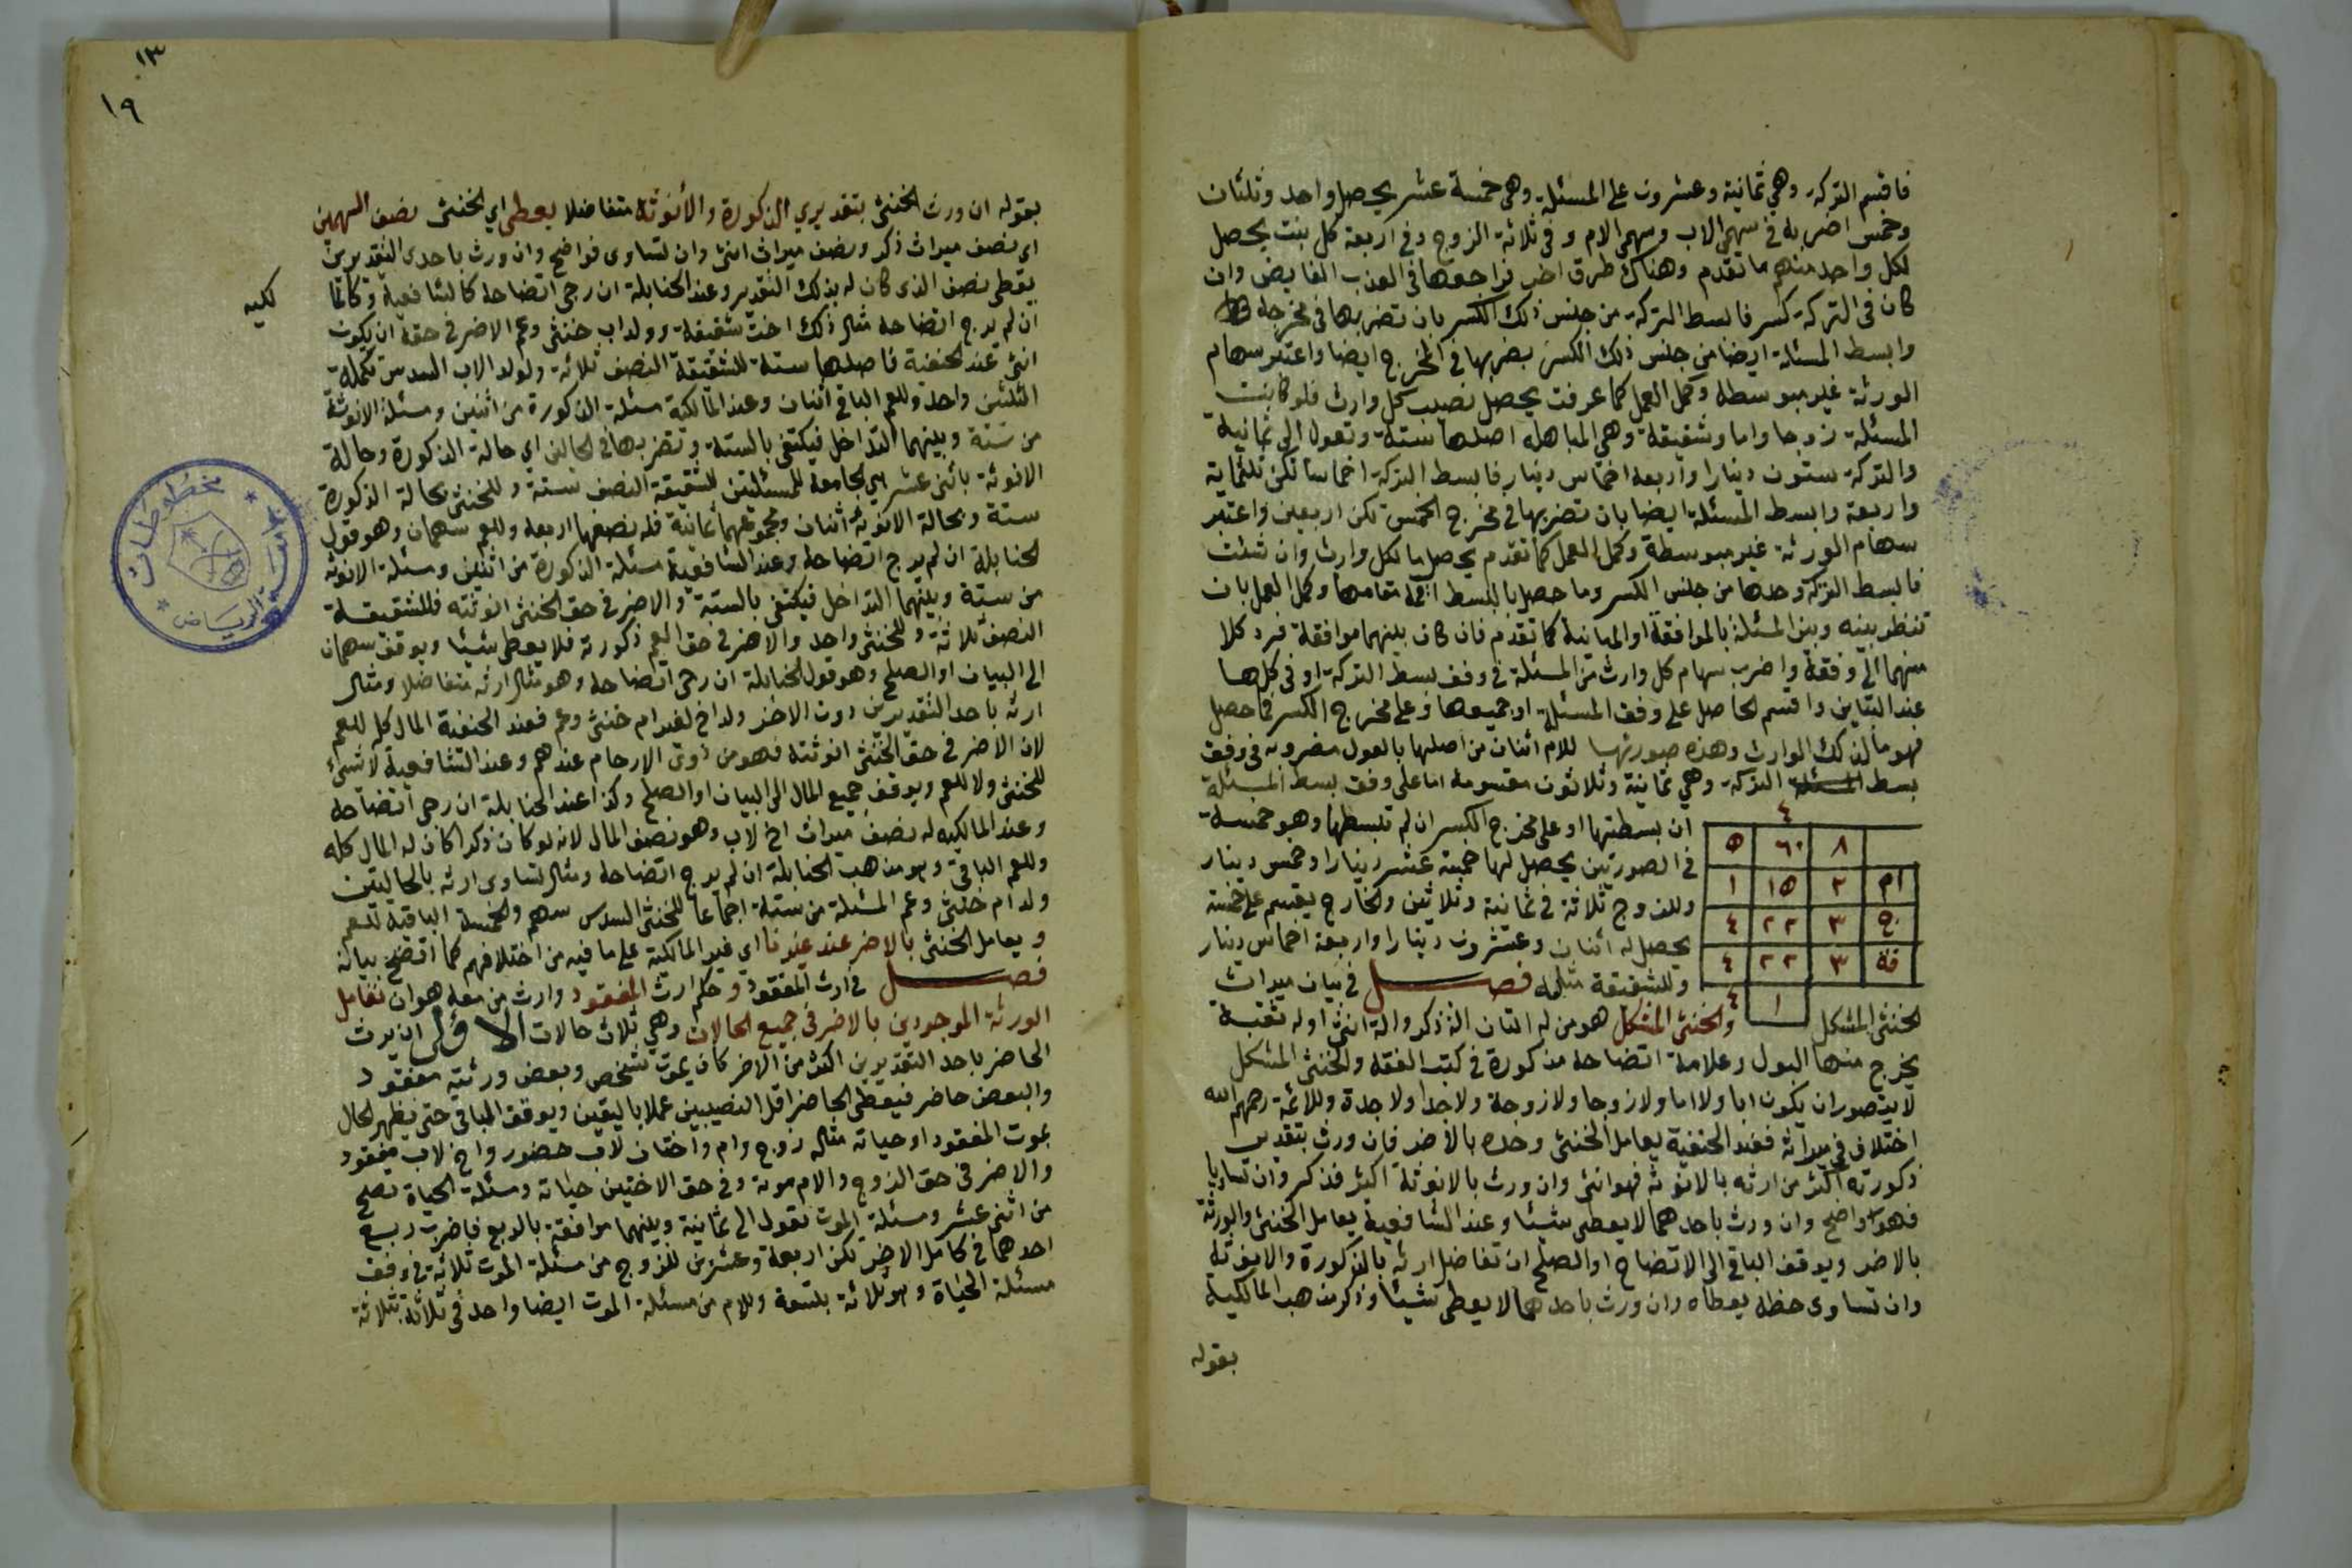 فاقسم التركة وهي ثمانية وعشرون على المسئلة وهي خمسة عشر يحصل واحد وثلثان
وخمس اضربه في سهمي الاب وسهمي الام وفي ثلاثة الزوج وفي اربعة كل بنت يحصل
لكل واحد منهم ما تقدم وهناك طرق اخر فراجعها في العذب الفايض وان
كان في التركة كسر فابسط التركة من جنس ذلك الكسر بان تضربها في مخرجه
وابسط المسئلة ايضا من جنس ذلك الكسر بضربها في المخرج ايضا واعتبر سهام
الورثة غير مبوسطه وكمل العمل كما عرفت يحصل نصيب كل وارث فلو كانت
المسئلة زوجا واما وشقيقة وهي المباهله اصلها ستة وتعول الى ثمانية
والتركة ستون دينارا واربعة اخماس دينار فابسط التركة اخماسا تكن ثلثماية
واربعة وابسط المسئلة ايضا بان تضربها في مخرج الخمس تكن اربعين واعتبر
سهام الورثة غير مبوسطة وكمل العمل كما تقدم يحصل ما لكل وارث وان شئت
فابسط التركة وحدها من جنس الكسر وما حصل بالبسط اقمه مقامها وكمل العمل بان
تنظر بينه وبين المسئلة بالموافقة او المباينة كما تقدم فان كان بينهما موافقة فرد كلا
منهما الى وفقه واضرب سهام كل وارث من المسئلة في وفق بسط التركة او في كلها
عند التباين واقسم الحاصل على وفق المسئلة او جميعها وعلى مخرج الكسر فما حصل
فهو ما لذلك الوارث وهذه صورتها للام اثنان من اصلها بالعول مضروبه في وفق
بسط المسئلة التركة وهي ثمانية وثلاثون مقسومة اما على وفق بسط المسئلة
ان بسطتها او على مخرج الكسر ان لم تبسطها وهو خمسة
في الصورتين يحصل لها خمسة عشر دينارا وخمس دينار
وللزوج ثلاثة في ثمانية وثلاثين والخارج يقسم على خمسة
يحصل له اثنان وعشرون دينارا واربعة اخماس دينار
وللشقيقة مثله فصل في بيان ميراث
٤
٨ ٦٠ ٥
ام ٢ ١٥ ١
ج ٣ ٢٢ ٤
قة ٣ ٢٢ ٤
١ ٤
الخنثى المشكل والخنثى المشكل هو من له التان الة ذكر والة انثى او له ثقبة
يخرج منها البول وعلامة اتضاحه مذكورة في كتب الفقه والخنثى المشكل
لا يتصور ان يكون ابا ولا اما ولا زوجا ولا زوجة ولا جدا ولا جدة وللائمة رحمهم الله
اختلاف في ميراثه فعند الحنفية يعامل الخنثى وحده بالاضر فان ورث بتقدير
ذكورته اكثر من ارثه بالانوثه فهو انثى وان ورث بالانوثة اكثر فذكر وان تساويا
فهو واضح وان ورث باحدهما لا يعطى شيئا وعند الشافعية يعامل الخنثى والورثة
بالاضر ويوقف الباقي الى الاتضاح او الصلح ان تفاضل ارثه بالذكورة والانوثة
وان تساوى حظه يعطاه وان ورث باحدهما لا يعطى شيئا وذكر مذهب المالكية
بقوله
١٣
١٩
بقوله ان ورث الخنثى بتقديري الذكورة والأنوثه متفاضلا يعطى اي الخنثى نصف السهمين
اي نصف ميراث ذكر ونصف ميراث انثى وان تساوى فواضح وان ورث باحدى التقديرين
يعطى نصف الذي كان له بذلك التقدير وعند الحنابلة ان رجى اتضاحه كالشافعية وكالما
لكيه
ان لم يرج اتضاحه مثال ذلك اخت شقيقة وولد اب خنثى وعم الاضر في حقه ان يكون
انثى عند الحنفية فاصلها ستة للشقيقة النصف ثلاثة ولولد الاب السدس تكملة
الثلثين واحد وللعم الباقي اثنان وعند المالكية مسئلة الذكورة من اثنين ومسئلة الانوثة
من ستة وبينهما التداخل فيكتفى بالستة وتضربها في الحالين اي حالة الذكورة وحالة
الانوثة باثنى عشر هي الجامعة للمسئلتين للشقيقة النصف ستة وللخنثى بحالة الذكورة
ستة وبحالة الانوثة اثنان ومجموعهما ثمانية فله نصفها اربعة وللعم سهمان وهو قول
الحنابلة ان لم يرج اتضاحه وعند الشافعية مسئلة الذكورة من اثنين ومسئلة الانوثه
من ستة وبينهما التداخل فيكتفى بالستة والاضر في حق الخنثى انوثته فللشقيقة
النصف ثلاثة وللخنثى واحد والاضر في حق العم ذكورته فلا يعطى شيئا ويوقف سهمان
الى البيان او الصلح وهو قول الحنابلة ان رجى اتضاحه وهو مثال ارثه متفاضلا ومثال
ارثه باحد التقديرين دون الاخر ولد اخ لغير ام خنثى وعم فعند الحنفية المال كله للعم
لان الاضر في حق الخنثى انوثته فهو من ذوى الارحام عندهم وعند الشافعية لا شيء
للخنثى ولا للعم ويوقف جميع المال الى البيان او الصلح وكذا عند الحنابلة ان رجى اتضاحه
وعند المالكيه له نصف ميراث اخ لاب وهو نصف المال لانه لو كان ذكرا كان له المال كله
وللعم الباقي وهو مذهب الحنابلة ان لم يرج اتضاحه ومثال تساوى ارثه بالحاليتين
ولد ام خنثى وعم المسئلة من ستة اجماعا للخنثى السدس سهم والخمسة الباقية للعم
ويعامل الخنثى بالاضر عند غيرنا اي غير المالكية على ما فيه من اختلافهم كما اتضح بيانه
فصل في ارث المفقود وحكم ارث المفقود وارث من معه هو ان تعامل
الورثة الموجودين بالاضر في جميع الحالات وهي ثلاث حالات الاولى ان يرث
الحاضر باحد التقديرين اكثر من الاخر كان يموت شخص وبعض ورثته مفقود
والبعض حاضر فيعطى الحاضر اقل النصيبين عملا باليقين ويوقف الباقي حتى يظهر الحال
بموت المفقود او حياته مثاله زوج وام واختان لاب حضور واخ لاب مفقود
والاضر في حق الزوج والام موته وفي حق الاختين حياته ومسئلة الحياة تصح
من اثنى عشر ومسئلة الموت تعول الى ثمانية وبينهما موافقة بالربع فاضرب ربع
احدهما في كامل الاخر تكن اربعة وعشرين للزوج من مسئلة الموت ثلاثة في وفق
مسئلة الحياة وهو ثلاثة بتسعة وللام من مسئلة الموت ايضا واحد في ثلاثة بثلاثة
مخطوطات
الرياض